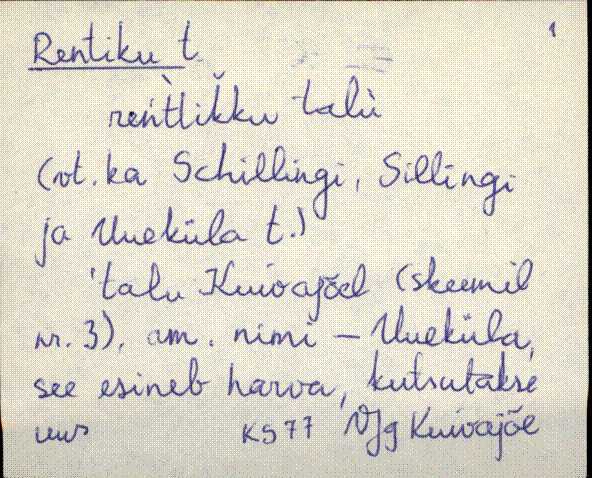 1
Rentiku t
reǹtlikku talù
(vt. ka Schillingi, Sillingi
ja Uueküla t.)
'talu Kuivajõel (skeemil
nr. 3), am. nimi – Uueküla,
see esineb harva, kutsutakse
uus KS 77 Vjg Kuivajõe